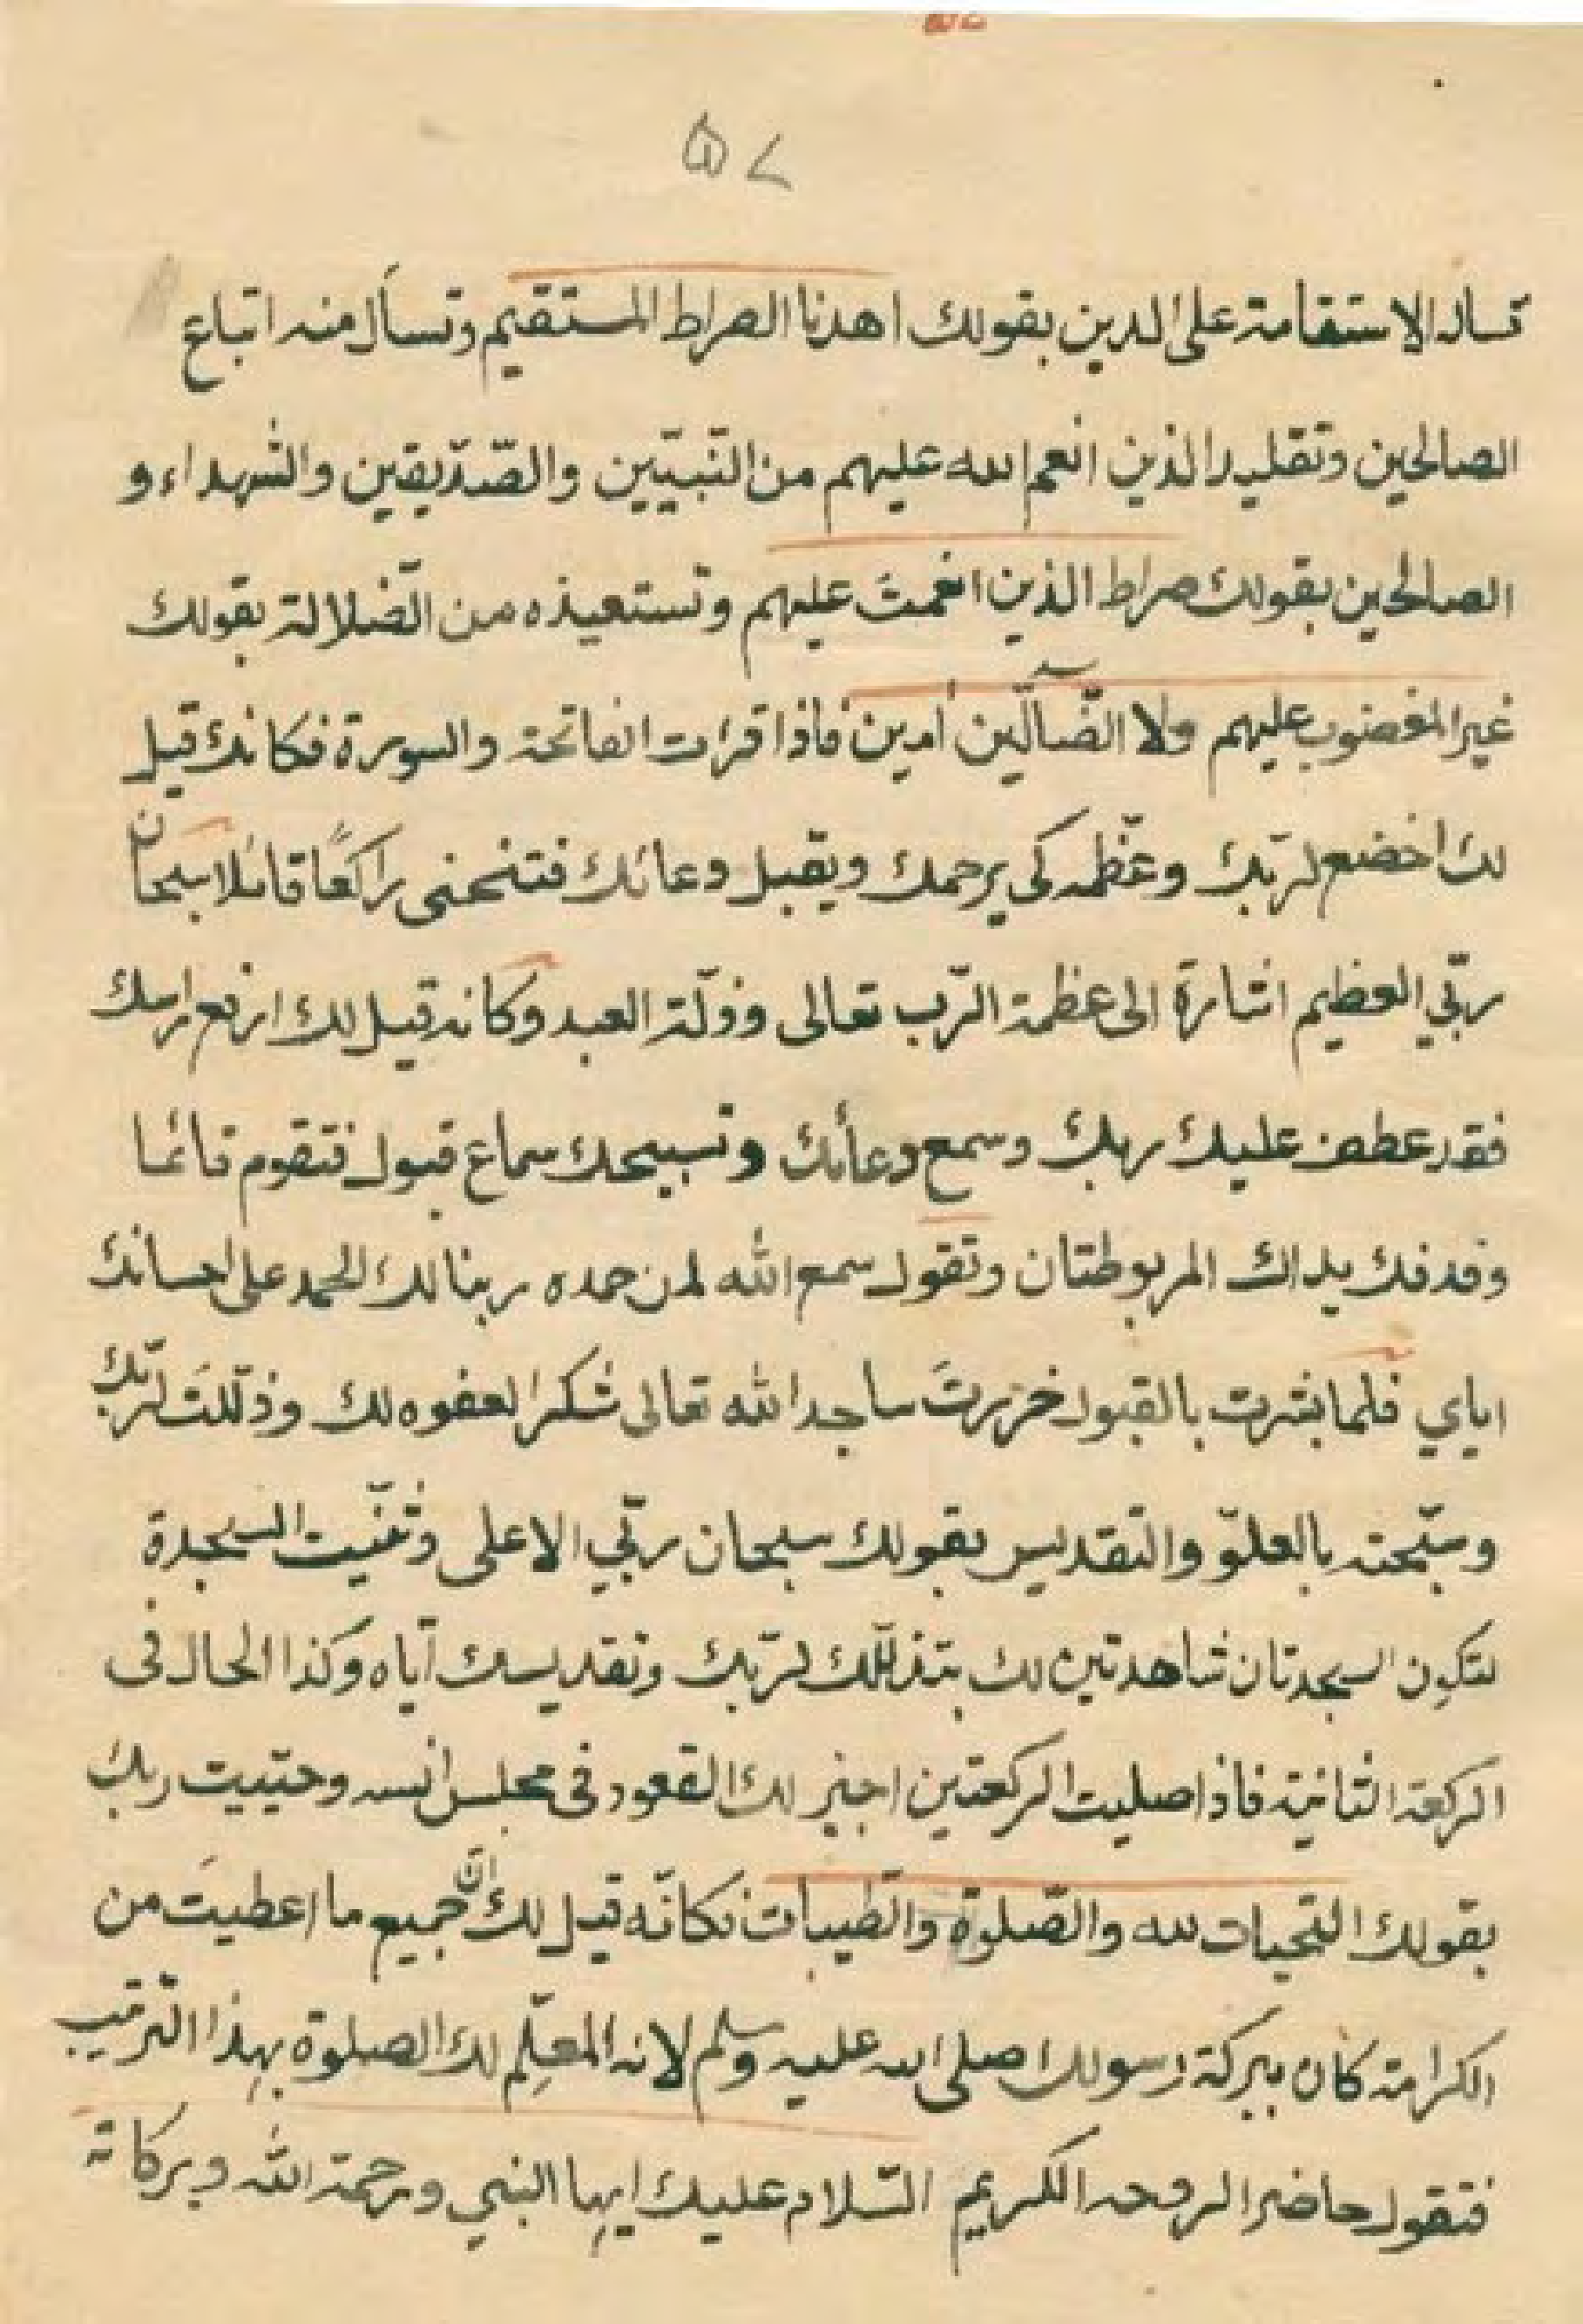 تسأل الاستقامة على الدين بقولك اهدنا الصراط المستقيم وتسأل منه اتباع
الصالحين وتقليد الذين انعم الله عليهم من النّبيّين والصّدّيقين والشهداء و
الصالحين بقولك صراط الذين انعمتَ عليهم وتستعيذه من الضّلالة بقولك
غير المغضوب عليهم ولا الضّآلّين أمين فاذا قرات الفاتحة والسورة فكانك قيل
لك اخضع لربّك وعظّمه كى يرحمك ويقبل دعائك فتنحنى راكعًا قائلا سبحان
ربّي العظيم اشارة الى عظمة الرّب تعالى وذلّة العبد وكانه قيل لك ارفع راسك
فقد عطف عليك ربك وسمع دعائك وتسبيحك سماع قبول فتقوم قائما
وقد فك يداك المربوطتان وتقول سمع الله لمن حمده ربنا لك الحمد على احسانك
اياي فلما بشرت بالقبول خررتَ ساجدا لله تعالى شكرا لعفوه لك وذلّلتَ لربّك
وسبّحته بالعلوّ والتقديس بقولك سبحان ربّي الاعلى وثنّيت السجدة
لتكون السجدتان شاهدتين لك بتذلّلك لربّك وتقديسك آياه وكذا الحال فى
الركعة الثانية فاذا صليت الركعتين اجيز لك القعود فى مجلس انسه وحيّيت ربك
بقولك التحيات لله والصّلوة والطّيبات فكانّه قيل لك انّ جميع ما اعطيتَ من
الكرامة كان ببركة رسولك صلى الله عليه وسلم لانه المعلِّم لك الصلوة بهذا الترتيب
فتقول حاضرا لروحه الكريم السّلام عليك ايها النبي ورحمة الله وبركاته